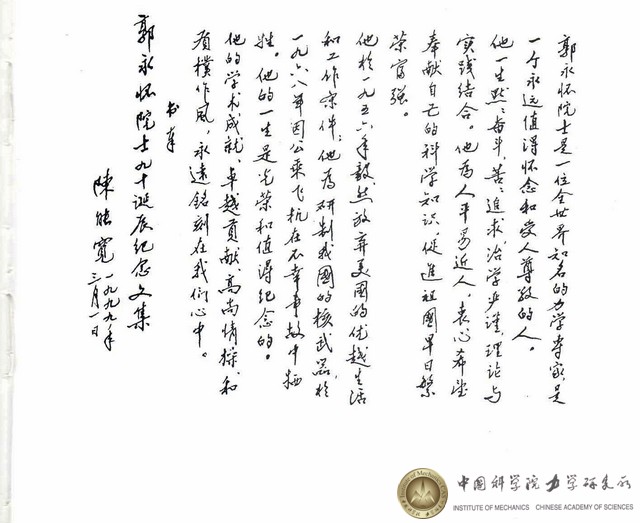 郭永怀院士是一位全世界知名的力学专家,是
一个永远值得怀念和受人尊敬的人。
他一生默默奋斗,苦苦追求,治学严谨,理论与
实践结合。他为人平易近人,衷心希望
奉献自己的科学知识,促進祖國早日繁
荣富强。
他於一九五六年毅然放弃美國的优越生活
和工作条件,他為研制我國的核武器,於
一九六八年因公乘飞机在不幸事故中牺
牲。他的一生是光荣和值得纪念的。
他的学术成就、卓越贡献、高尚情操、和
质樸作風,永遠銘刻在我们心中。
书奉
郭永怀院士九十诞辰纪念文集
陳能寬
一九九九年
三月一日
中国科学院力学研究所
Institute of Mechanics
INSTITUTE OF MECHANICS CHINESE ACADEMY OF SCIENCES